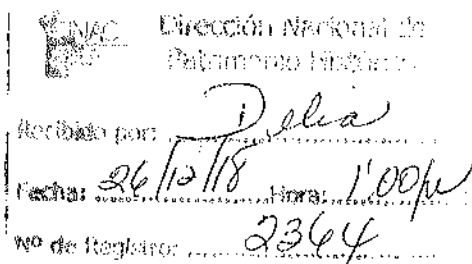 INAC Dirección Nacional de
Patrimonio Histórico
Recibido por: Delia
Fecha: 26/12/18 Hora: 1:00 p
Nº de Registro: 2364